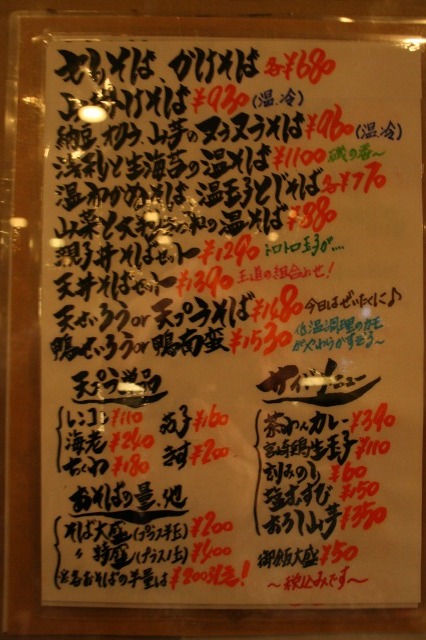 せいろそば、かけそば 各¥680
ぶっかけそば ¥930 (温、冷)
納豆、オクラ、山芋のヌラヌラそば ¥960 (温、冷)
浅利と生海苔の温そば ¥1100 磯の香〜
温わかめそば、温玉子とじそば 各¥770
山菜と大根の温そば ¥880
親子丼そばセット ¥1290 トロトロ玉子が…
天丼そばセット ¥1390 王道の組合わせ!
天せいろうor天ぷらそば ¥1480 今日はぜいたくに♪
鴨せいろうor鴨南蛮 ¥1530 低温調理のカモがやわらかすぎる〜
天ぷら単品
レンコン ¥110
海老 ¥240
ちくわ ¥180
茄子 ¥160
¥200
サイドメニュー
茶わんカレー ¥390
宮崎鶏生玉子 ¥110
刻みのり ¥60
塩むすび ¥150
おろし山芋 ¥350
御飯大盛 ¥50
おそばの量、他
そば大盛(プラス半玉) ¥200
〃 特盛(プラス1玉) ¥400
※各おそばの半量は¥200引き!
〜税込みです〜